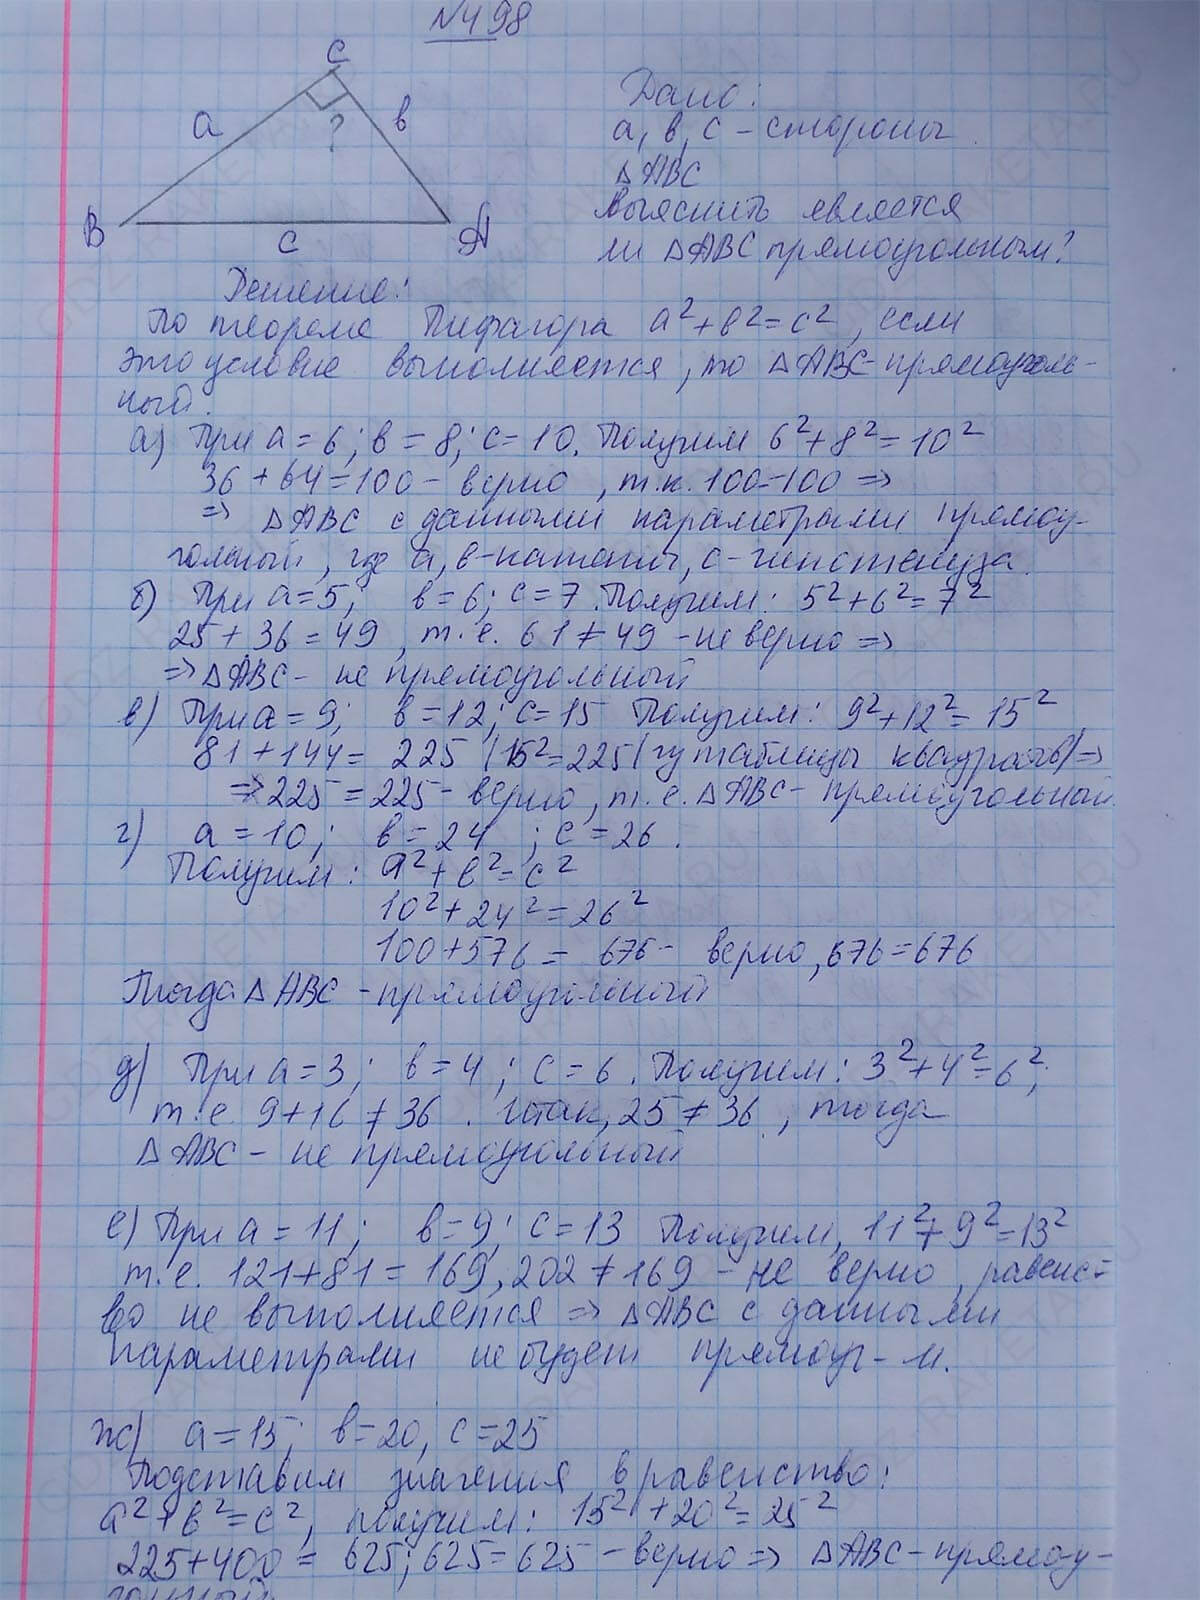 №498
C
a
в
?
B
c
A
Дано:
a, в, c – стороны
△ABC
выяснить является
ли △ABC прямоугольным?
Решение:
По теореме Пифагора a²+в²=c², если
это условие выполняется, то △ABC-прямоуголь-
ный.
а) При a=6; в=8; c=10. Получим 6²+8²=10²
36+64=100 – верно, т.к. 100=100 =>
=> △ABC с данными параметрами прямоу-
гольный, где a, в-катеты, c-гипотенуза.
б) При a=5; в=6; c=7. Получим: 5²+6²=7²
25+36=49, т.е. 61≠49 – не верно =>
=> △ABC – не прямоугольный
в) При a=9; в=12; c=15 Получим: 9²+12²=15²
81+144=225 (15²=225 (из таблицы квадратов) =>
=> 225=225 – верно, т.е. △ABC – прямоугольный.
г) a=10; в=24; c=26.
Получим: a²+в²=c²
10²+24²=26²
100+576=676 – верно, 676=676
Тогда △ABC – прямоугольный
д) При a=3; в=4; c=6. Получим: 3²+4²=6²;
т.е. 9+16≠36. Итак, 25≠36, тогда
△ABC – не прямоугольный
е) При a=11; в=9; c=13 Получим, 11²+9²=13²
т.е. 121+81=169, 202≠169 – не верно, равенст-
во не выполняется => △ABC с данными
параметрами не будет прямоуг-м.
ж) a=15; в=20, c=25
Подставим значения в равенство:
a²+в²=c², получим: 15²+20²=25²
225+400=625; 625=625 – верно => △ABC – прямоу-
гольный